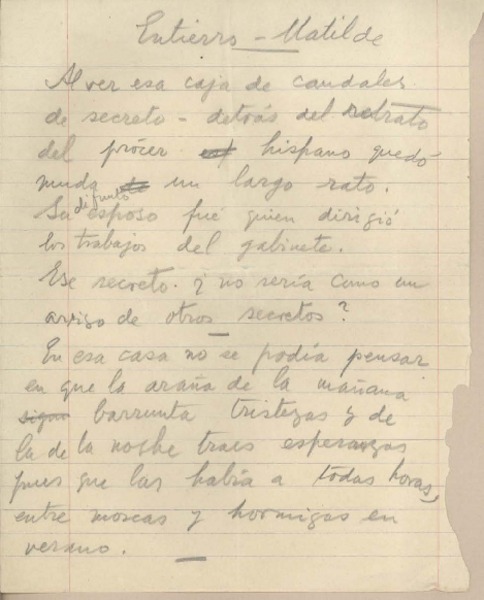 Entierro - Matilde
Al ver esa caja de caudales
de secreto - detrás del retrato
del prócer hispano quedó
muda un largo rato.
Su difunto esposo fué quien dirigió
los trabajos del gabinete.
Ese secreto. ¿no sería como un
aviso de otros secretos?
En esa casa no se podía pensar
en que la araña de la mañana
barrunta tristezas y de
la de la noche traes esperanzas
pues que las había a todas horas,
entre moscas y hormigas en
verano.